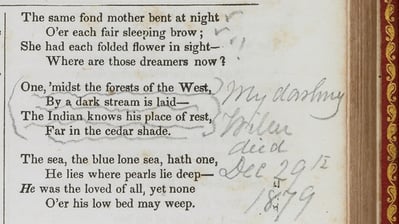 The same fond mother bent at night
O'er each fair sleeping brow;
She had each folded flower in sight—
Where are those dreamers now?
One, 'midst the forests of the West,
By a dark stream is laid—
The Indian knows his place of rest,
Far in the cedar shade.
The sea, the blue lone sea, hath one,
He lies where pearls lie deep—
He was the loved of all, yet none
O'er his low bed may weep.
My darling
died
Dec 29th
1879